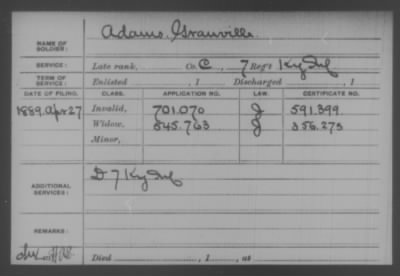 Adams, Granville.
NAME OF SOLDIER:
SERVICE: Late rank, Co. C, 7 Reg't Ky Inf
TERM OF SERVICE: Enlisted , 1 Discharged , 1
DATE OF FILING. CLASS. APPLICATION NO. LAW. CERTIFICATE NO.
1889. Apr 27 Invalid, 701.070 J 591.399
Widow, 845.763 J 356.273
Minor,
ADDITIONAL SERVICES: D 7 Ky Inf
REMARKS:
Died , 1 , at